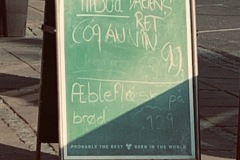 Tilbud DAGENS
RET
COQ AU VIN
90,-
Æbleflæsk på
brød 129
PROBABLY THE BEST BEER IN THE WORLD